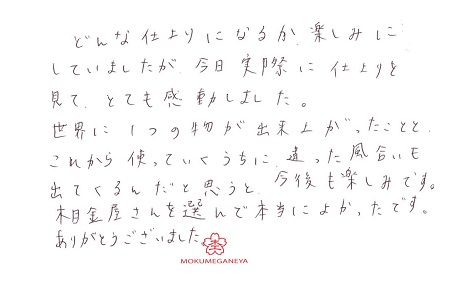 どんな仕上りになるか、楽しみに
していましたが、今日 実際に 仕上りを
見て、とても感動しました。
世界に1つの物が出来上がったことと、
これから使っていくうちに、違った風合いも
出てくるんだと思うと、今後も楽しみです。
杢目金屋さんを選んで本当によかったです。
ありがとうございました。
MOKUMEGANEYA